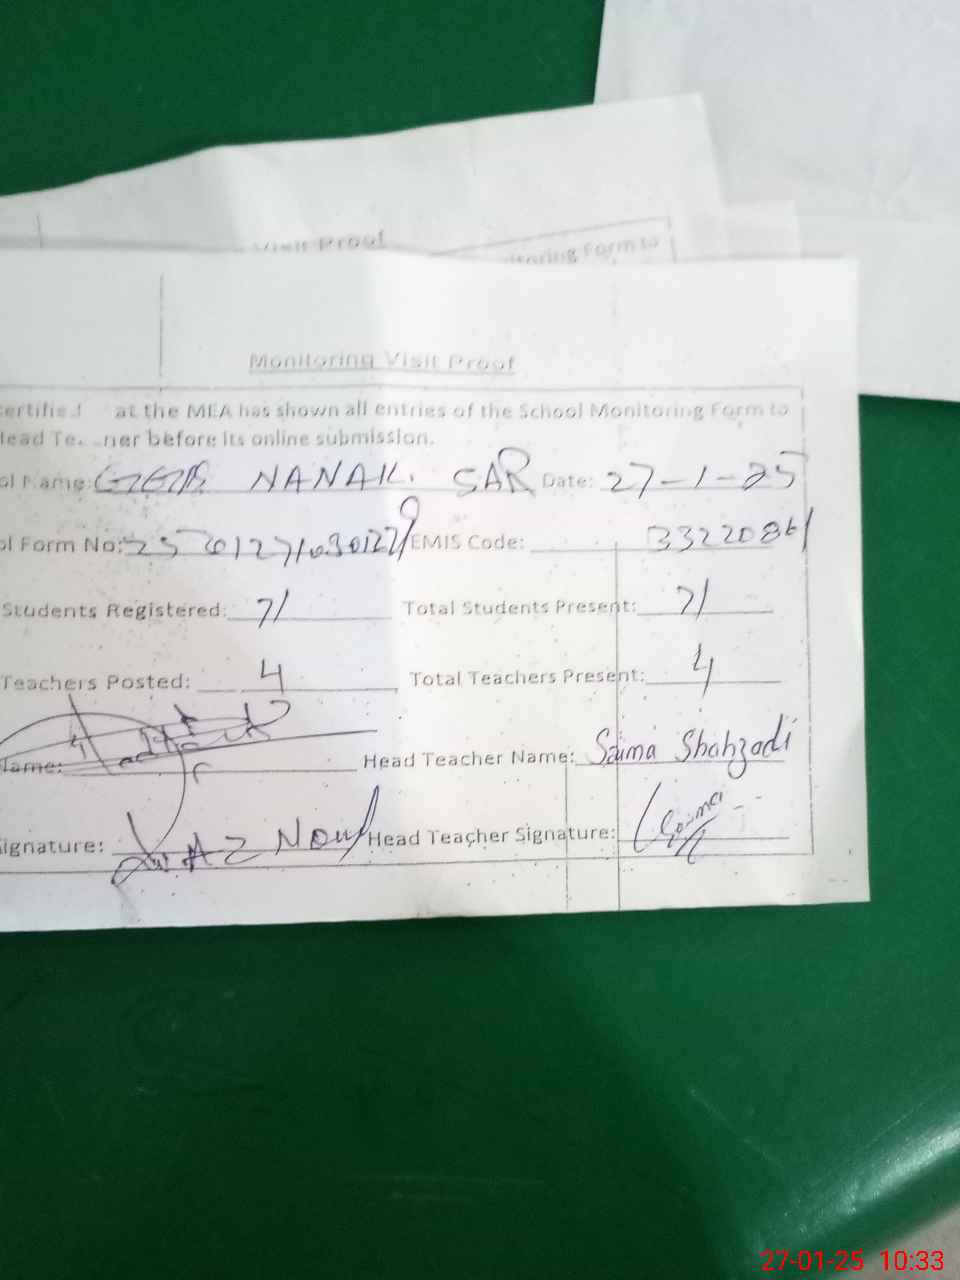 Visit Proof
itoring Form to
Monitoring Visit Proof
ertified at the MEA has shown all entries of the School Monitoring Form to
lead Te ner before its online submission.
ol Name: NANAK SAR Date: 27-1-25
ol Form No: EMIS Code: 33220861
Students Registered: 71 Total Students Present: 71
Teachers Posted: 4 Total Teachers Present: 4
Name: Head Teacher Name: Saima Shahzadi
ignature: Head Teacher Signature: Saima
27-01-25 10:33